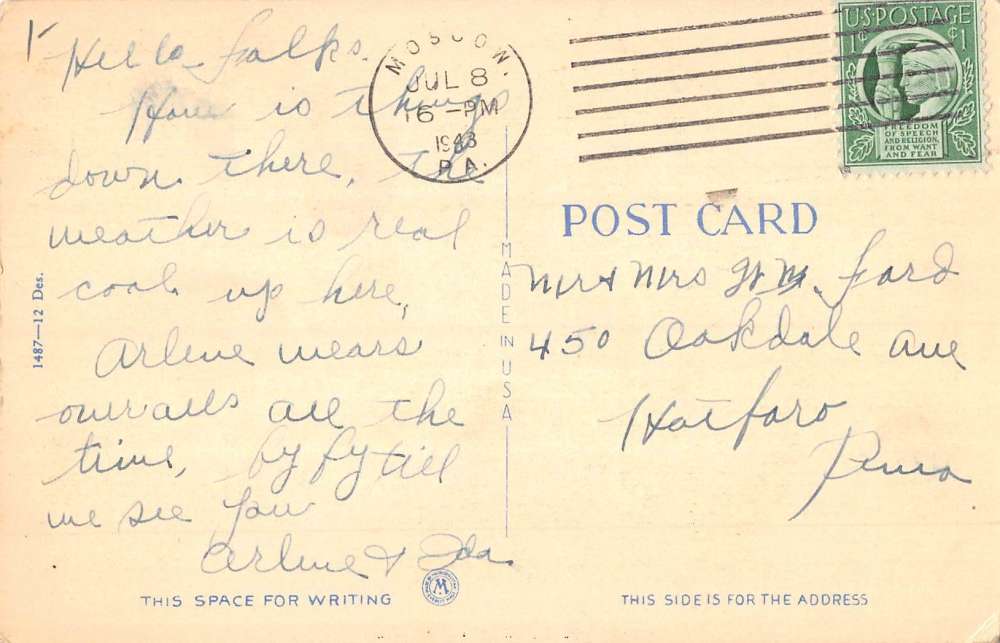 Hello folks.
How is things
down there, the
weather is real
cool up here,
Arlene wears
overalls all the
time, by by till
we see you
Arlene & Ida
THIS SPACE FOR WRITING
1487—12 Des.
MADE IN USA
MOSCOW.
JUL 8
6 –PM
1943
PA.
U·S·POSTAGE
1¢ ¢1
FREEDOM
OF SPEECH
AND RELIGION,
FROM WANT
AND FEAR
POST CARD
Mr & Mrs Wm. Ford
450 Oakdale Ave
Hatboro
Penna
THIS SIDE IS FOR THE ADDRESS